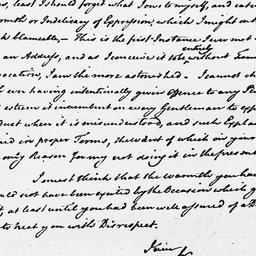 , least I should forget what I owe to myself, and
rmth or Indelicacy of Expression, which I might
k blameable,— This is the first Instance I ever met
entirely
an Address, and as I conceive it to be without
vocation, I am the more astonished.— I cannot
ever having intentionally given offence to any
esteem it incumbent on every Gentleman to
duct when it is misunderstood, and such
ed in proper Terms, the want of which in your
only Reason for my not doing it in the present
I must think that the warmth you
uld not have been excited by the Occasion which
t, at least until you had been well assured of a
to treat you with Disrespect.